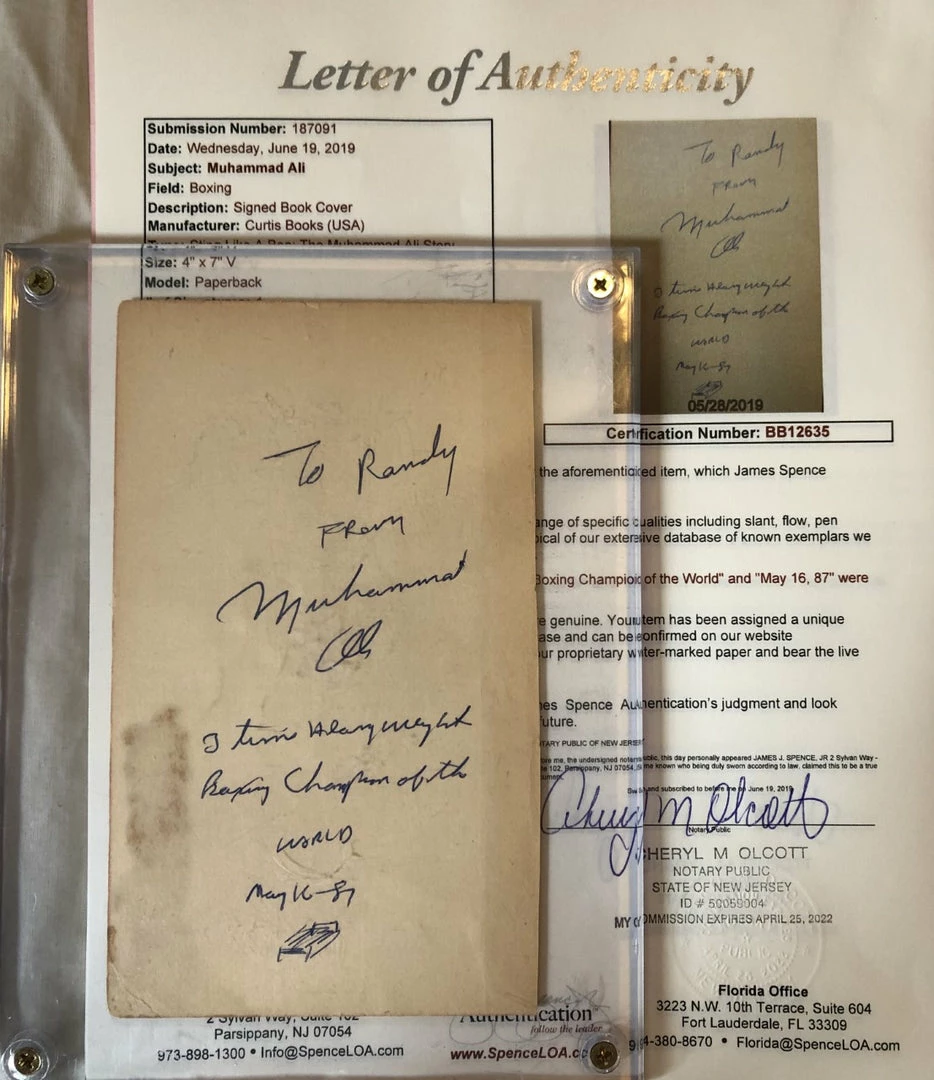 Letter of Authenticity
Submission Number: 187091
Date: Wednesday, June 19, 2019
Subject: Muhammad Ali
Field: Boxing
Description: Signed Book Cover
Manufacturer: Curtis Books (USA)
Sting Like A Bee: The Muhammad Ali Story
Size: 4" x 7" V
Model: Paperback
To Randy
From
Muhammad
Ali
3 time Heavyweight
Boxing Champion of the
WORLD
May 16-87
05/28/2019
Certification Number: BB12635
the aforementioned item, which James Spence
ange of specific qualities including slant, flow, pen
ical of our extensive database of known exemplars we
Boxing Champion of the World" and "May 16, 87" were
e genuine. Your item has been assigned a unique
ase and can be confirmed on our website
ur proprietary water-marked paper and bear the live
es Spence Authentication's judgment and look
uture.
TARY PUBLIC OF NEW JERSEY
ore me, the undersigned notary public, this day personally appeared JAMES J. SPENCE, JR 2 Sylvan Way -
te 102, Parsippany, NJ 07054, to me known who being duly sworn according to law, claimed this to be a true
ument.
and subscribed to before me on June 19, 2019
Cheryl M Olcott
Notary Public
CHERYL M OLCOTT
NOTARY PUBLIC
STATE OF NEW JERSEY
ID # 50059004
MY COMMISSION EXPIRES APRIL 25, 2022
To Randy
From
Muhammad
Ali
3 time Heavyweight
Boxing Champion of the
WORLD
May 16-87
2 Sylvan Way, Suite 102
Parsippany, NJ 07054
973-898-1300 • Info@SpenceLOA.com
Authentication
follow the leader
www.SpenceLOA.c
Florida Office
3223 N.W. 10th Terrace, Suite 604
Fort Lauderdale, FL 33309
4-380-8670 • Florida@SpenceLOA.com